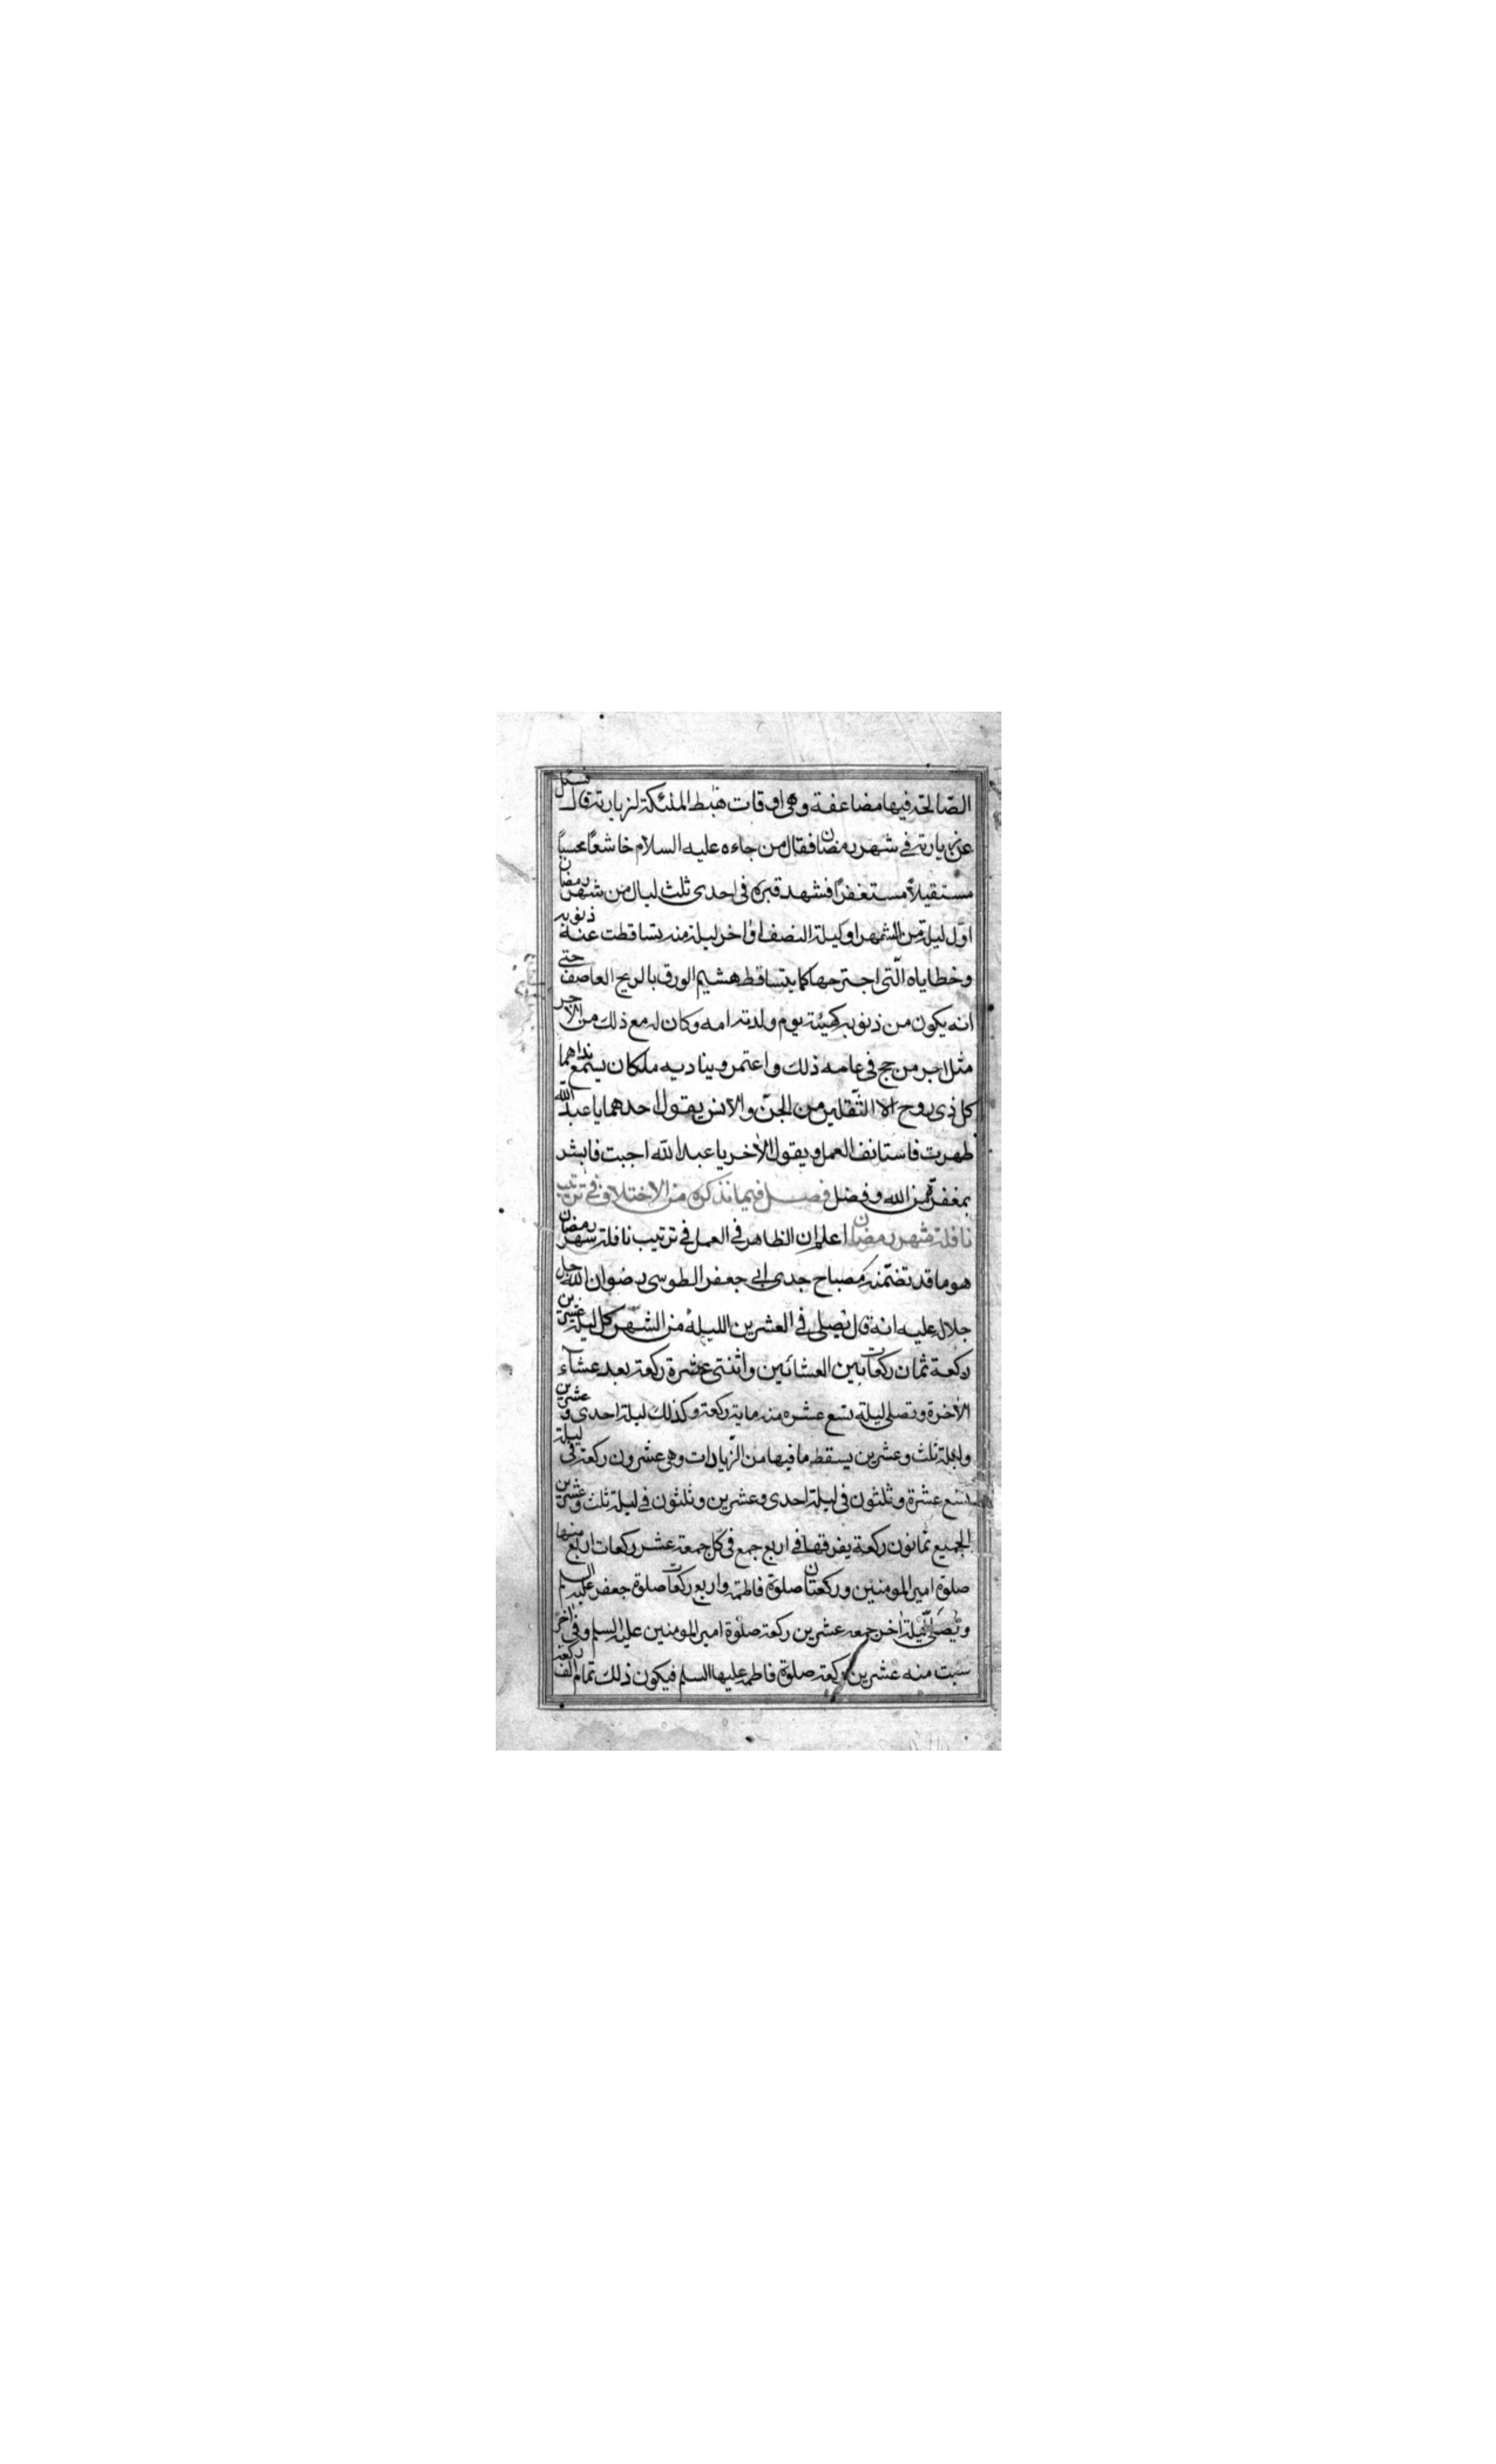 الصّالحة فيها مضاعفة وهى اوقات هبط الملئكة لزيارته قال فسئل
عن زيارته في شهر رمضان فقال من جاءه عليه السلام خاشعًا محسبًا
مستقيلاً مستغفرًا فشهد قبره فى احدى ثلث ليال من شهر رمضان
اوّل ليلة من الشهر او ليلة النصف او اخر ليلة منه تساقطت عنه ذنوبه
وخطاياه الّتى اجترحها كما يتساقط هشيم الورق بالريح العاصف حتى
انه يكون من ذنوبه كهيئة يوم ولدته امه وكان له مع ذلك من الاجر
مثل اجر من حج فى عامه ذلك واعتمر ويناديه ملكان يسمع نداهما
كل ذى روح الا الثّقلين من الجنّ والانس يقول احدهما يا عبد الله
طهرت فاستانف العمل ويقول الاخر يا عبد الله اجبت فابشر
بمغفرة من الله وفضل فصل فيما نذكره من الاختلاف فى ترتيب
نافلة شهر رمضان اعلم ان الظاهر فى العمل فى ترتيب نافلة شهر رمضان
هو ما قد تضمّنه مصباح جدى ابى جعفر الطوسى رضوان الله جل
جلاله عليه انه قال تصلى فى العشرين الليلة من الشهر كل ليلة عشرين
ركعة ثمان ركعات بين العشائين واثنتى عشرة ركعة بعد عشاء
الاخرة وتصلى ليلة تسع عشره منه ماية ركعة وكذلك ليلة احدى وعشرين
وليلة ثلث وعشرين يسقط ما فيها من الزّيادات وهى عشرون ركعة فى ليلة
تسع عشرة وثلثون فى ليلة احدى وعشرين وثلثون فى ليلة ثلث وعشرين
الجميع ثمانون ركعة يفرقها فى اربع جمع فى كل جمعة عشر ركعات اربع منها
صلوة امير المومنين وركعتان صلوة فاطمة واربع ركعات صلوة جعفر عليه السلم
وتصلى ليلة اخر جمعه عشرين ركعة صلوة امير المومنين عليه السلم وفى اخر
سبت منه عشرين ركعة صلوة فاطمة عليها السلم فيكون ذلك تمام الف ركعة